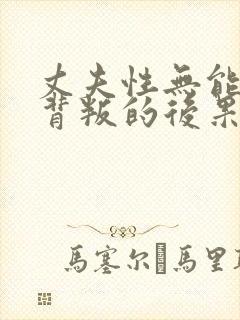 丈夫性無能
背叛的後果
馬塞尔 馬里